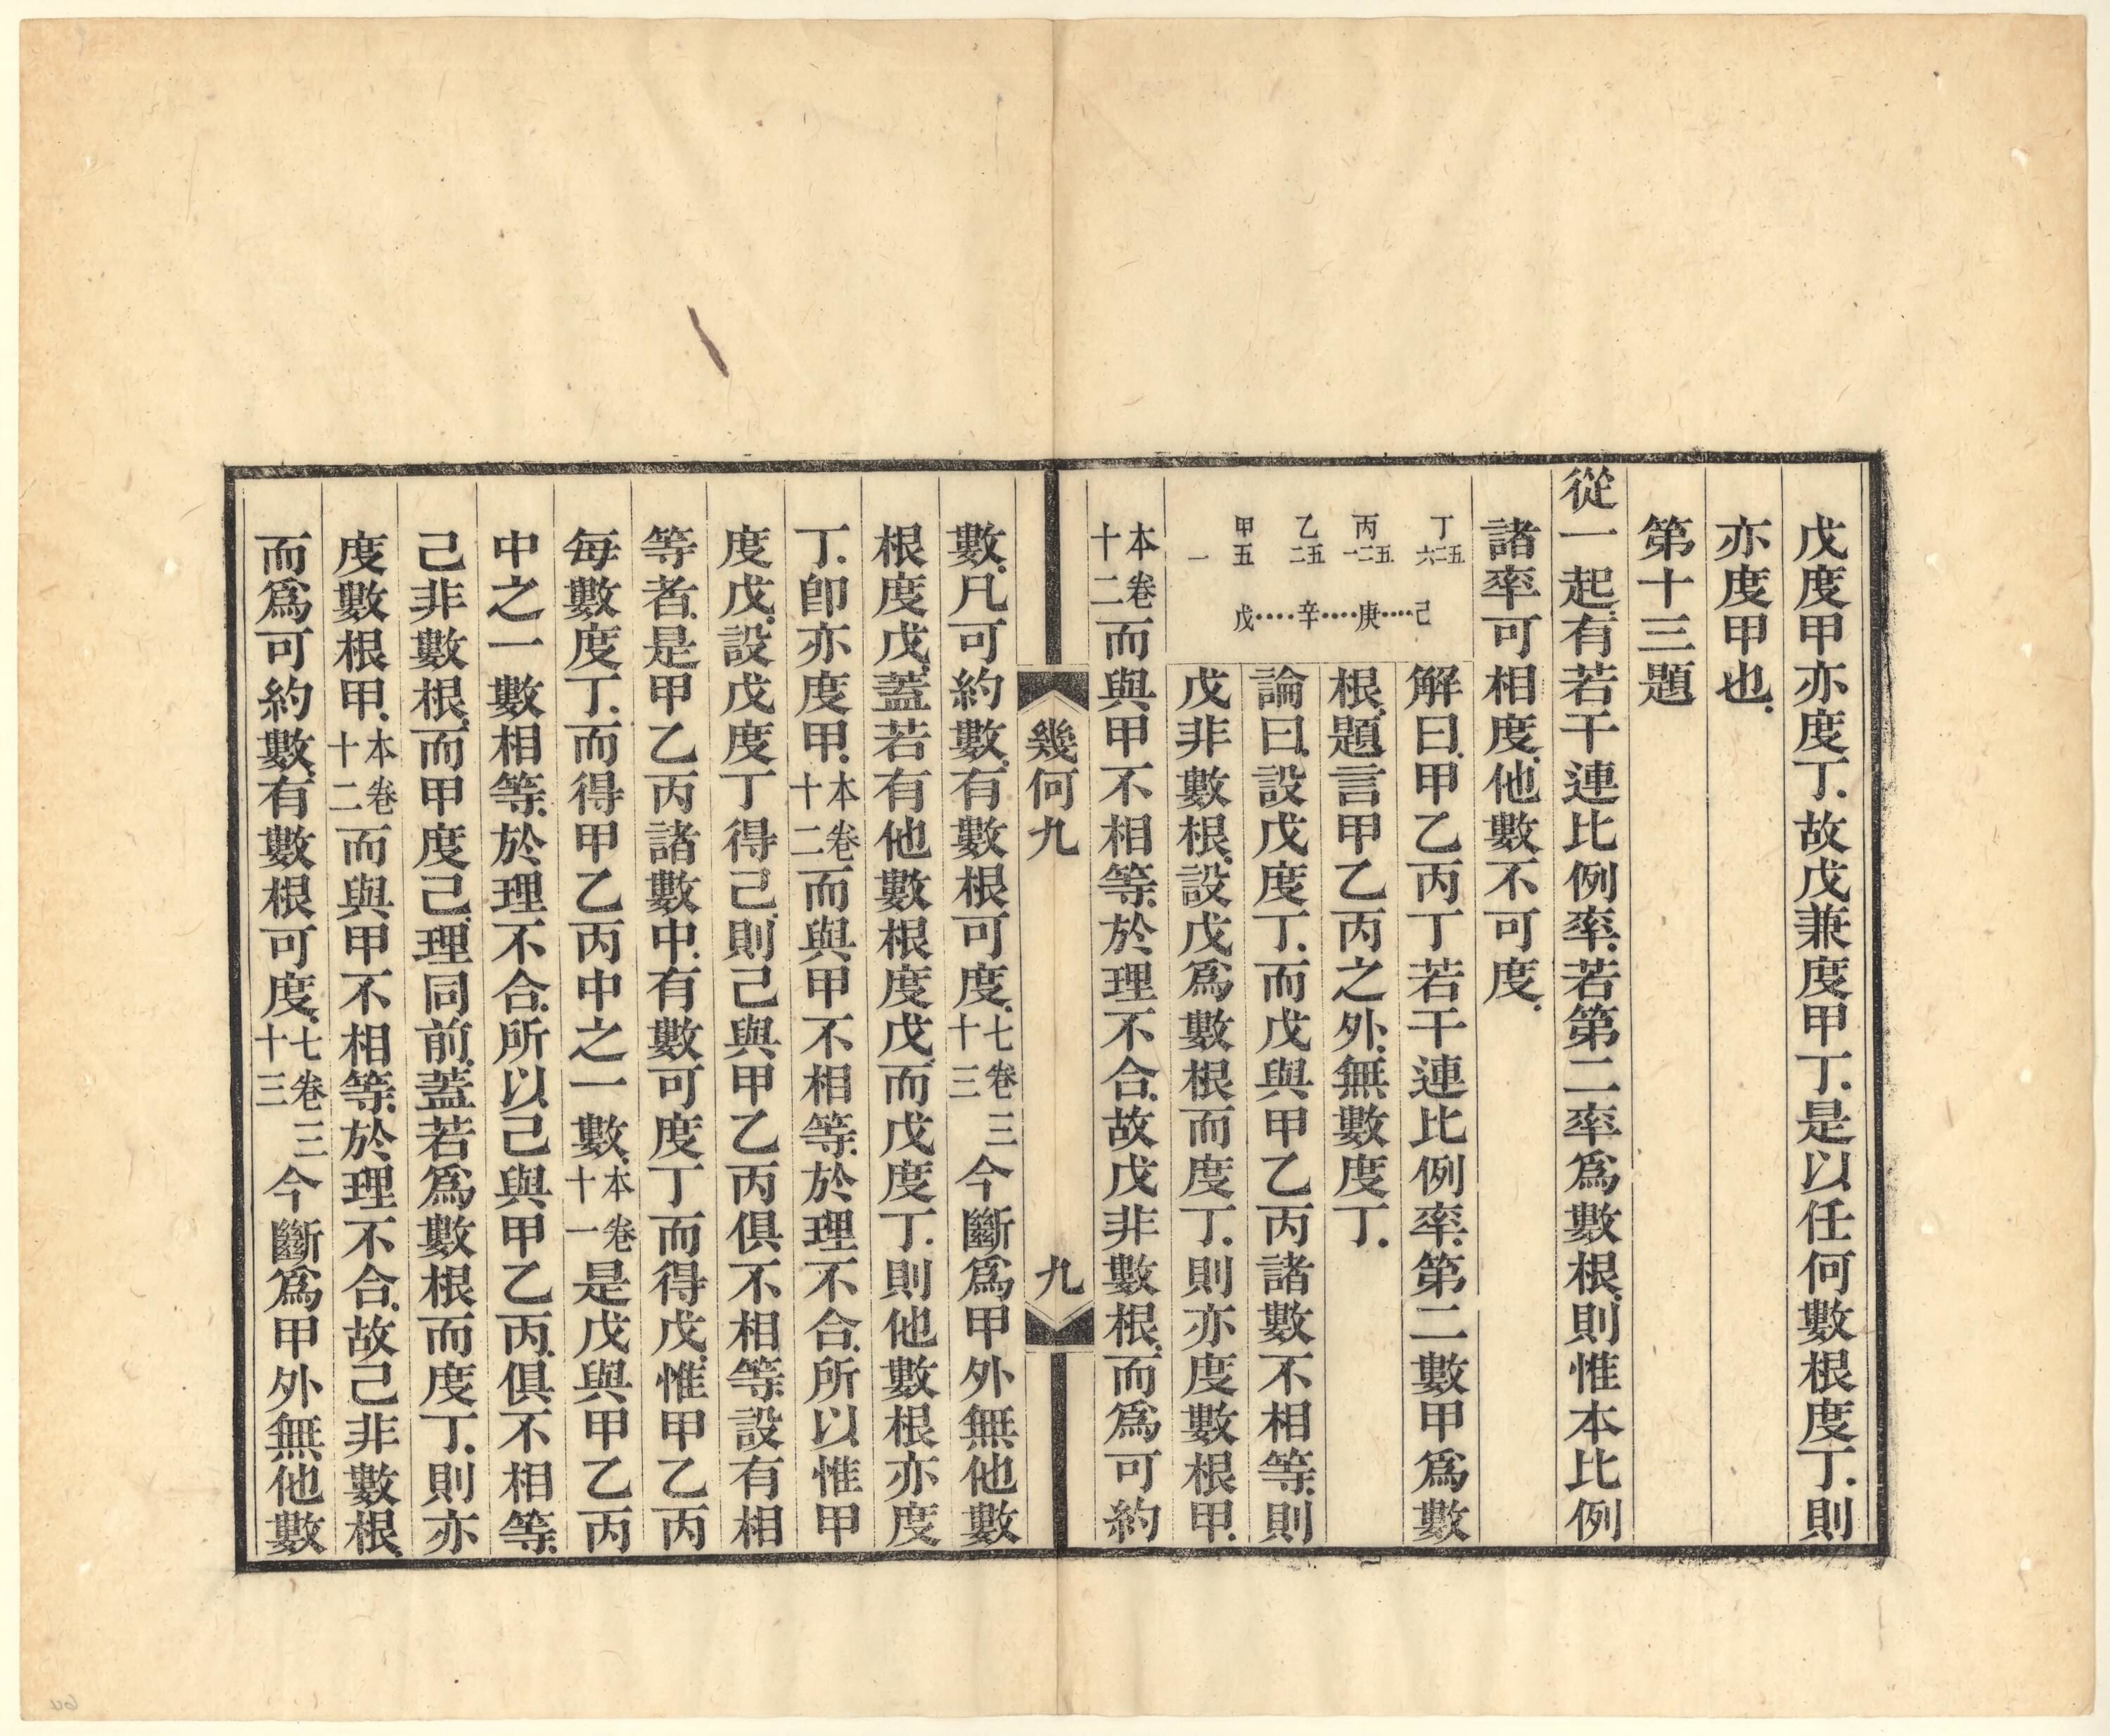 戊度甲亦度丁.故戊兼度甲丁.是以任何數根度丁.則
亦度甲也.
第十三題
從一起.有若干連比例率.若第二率爲數根.則惟本比例
諸率可相度.他數不可度.
丁 五二六
丙 五二一
乙 五二
甲 五
一
己‥‥庚‥‥辛‥‥戊
解曰.甲乙丙丁若干連比例率.第二數甲爲數
根.題言甲乙丙之外.無數度丁.
論曰.設戊度丁.而戊與甲乙丙諸數不相等.則
戊非數根.設戊爲數根而度丁.則亦度數根甲.
本卷十二而與甲不相等.於理不合.故戊非數根.而爲可約
幾何九
九
數.凡可約數.有數根可度.七卷三十三今斷爲甲外無他數
根度戊.蓋若有他數根度戊.而戊度丁.則他數根亦度
丁.卽亦度甲.本卷十二而與甲不相等.於理不合.所以惟甲
度戊.設戊度丁得己.則己與甲乙丙俱不相等.設有相
等者.是甲乙丙諸數中.有數可度丁而得戊.惟甲乙丙
每數度丁.而得甲乙丙中之一數.本卷十一是戊與甲乙丙
中之一數相等.於理不合.所以己與甲乙丙.俱不相等.
己非數根.而甲度己.理同前.蓋若爲數根而度丁.則亦
度數根甲.本卷十二而與甲不相等.於理不合.故己非數根.
而爲可約數.有數根可度.七卷三十三今斷爲甲外無他數